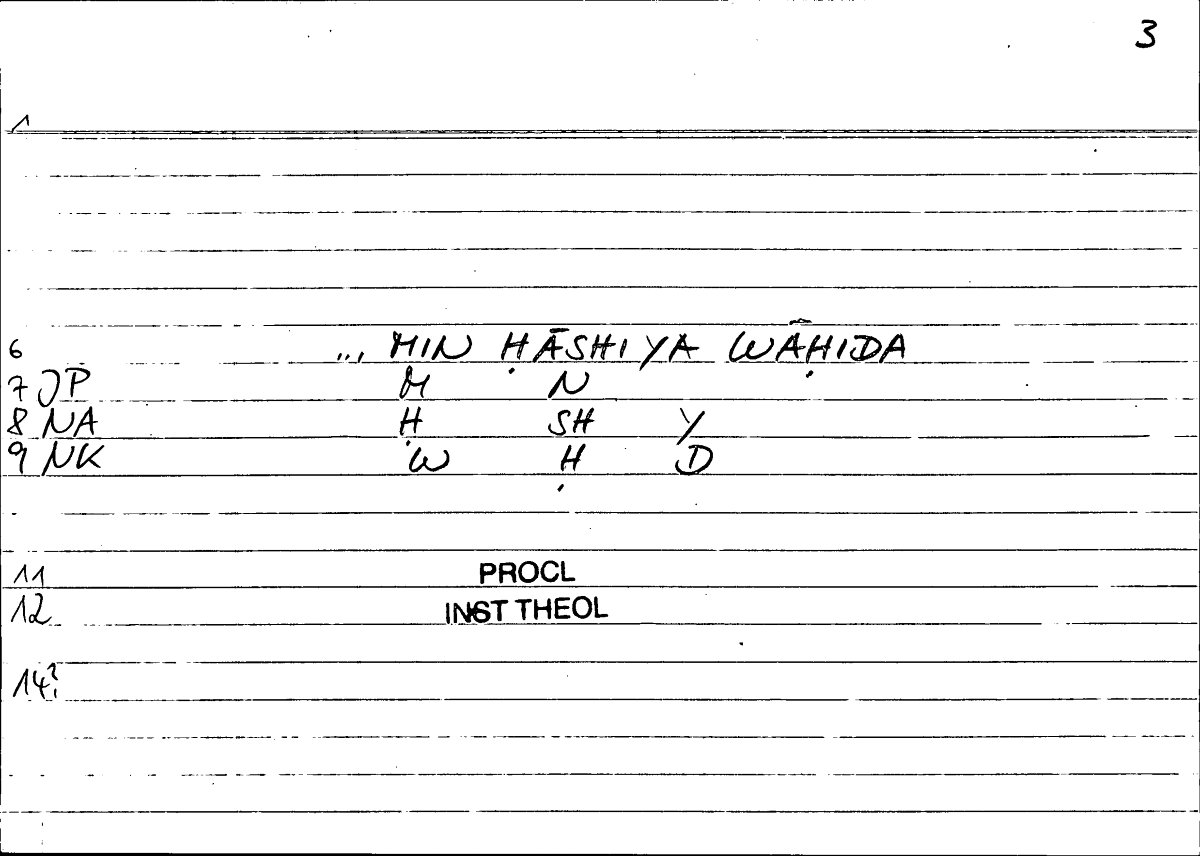 3
1
6 ... MIN ḤĀSHIYA WĀḤIDA
7 JP M N
8 NA Ḥ SH Y
9 NK W Ḥ D
11 PROCL
12 INST THEOL
14?